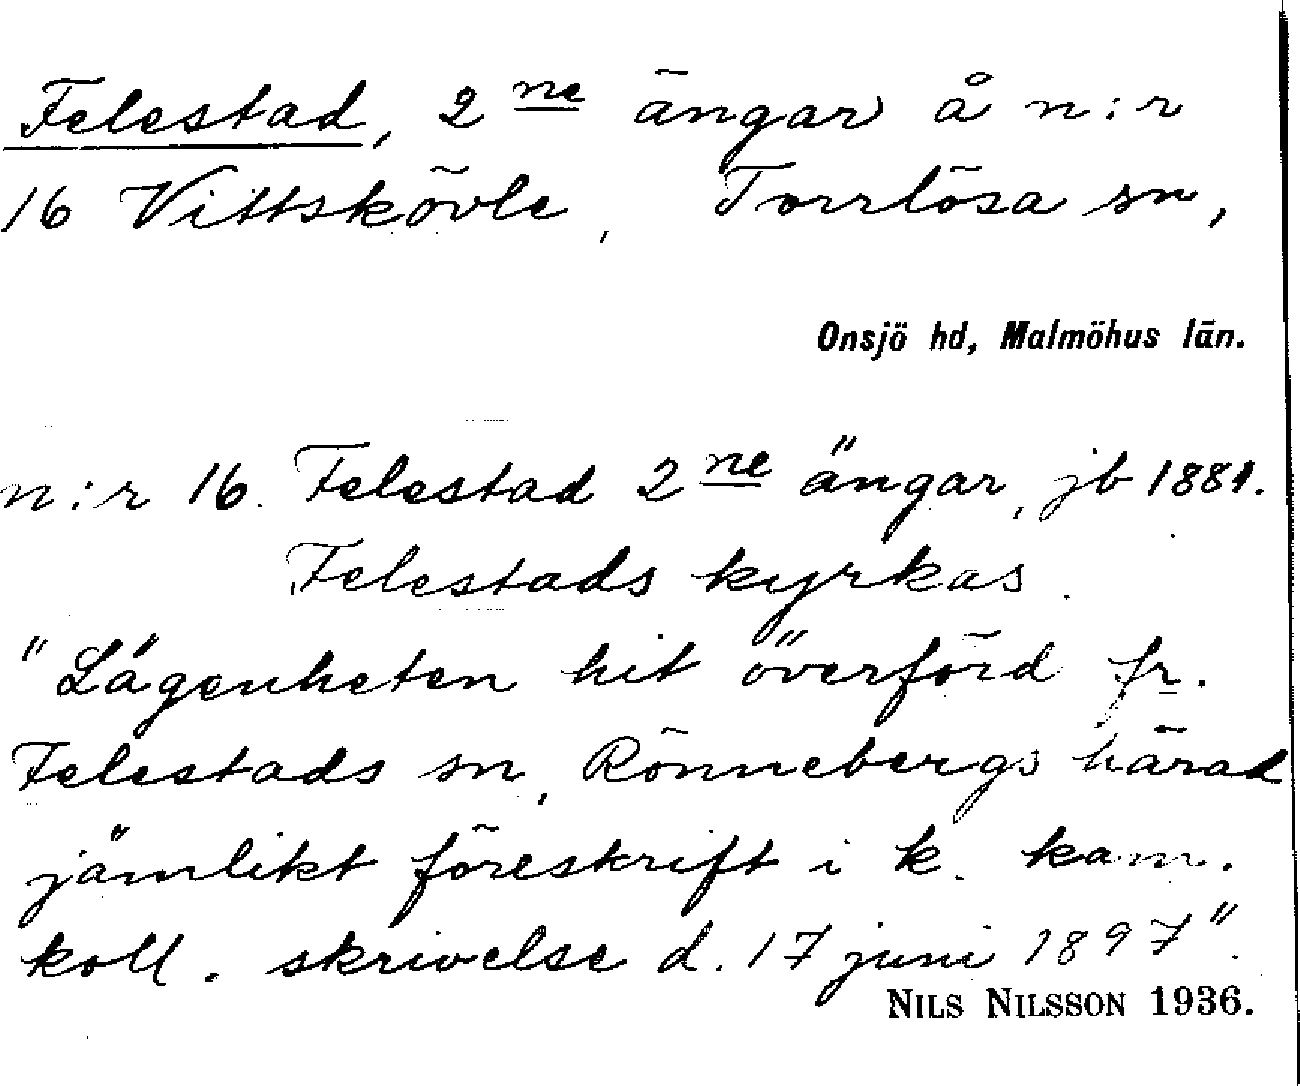 Felestad, 2 ne ängar å n:r
16 Vittskövle, Torrlösa sn,
Onsjö hd, Malmöhus län.
n:r 16. Felestad 2 ne ängar, jb 1881.
Felestads kyrkas.
"Lägenheten hit överförd fr.
Felestads sn, Rönnebergs härad
jämlikt föreskrift i k. kam.
koll. skrivelse d. 17 juni 1897".
NILS NILSSON 1936.